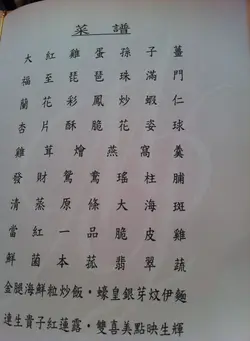 菜譜
大紅雞蛋孫子薑
福至琵琶珠滿門
蘭花彩鳳炒蝦仁
杏片酥脆花姿球
雞茸燴燕窩羹
發財鴛鴦瑤柱脯
清蒸原條大海斑
當紅一品脆皮雞
鮮菌本菰翡翠蔬
金腿海鮮粒炒飯・蠔皇銀芽炆伊麵
連生貴子紅蓮露・雙喜美點映生輝